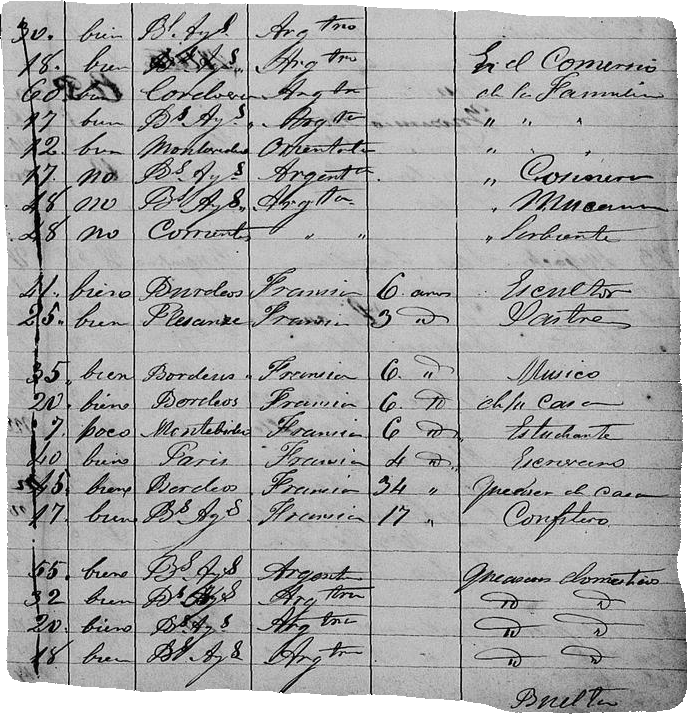 30. bien Bs Ays Argtno
18. bien Bs Ays. Argtno En el Comersio
60 bien Cordovera Argtn de la Familia
17 bien Bs Ays. Argtn " " "
12. bien Montevideo Orientala " "
17. no Bs Ays Argenta " Cosinera
48 no Bs Ays. Argtna " Mucama
28 no Corrientes " " " Sirbiente
41. biene Burdeos Fransia 6. anos Escultor
25. bien Fransia 3 " Sastre
35. bien Bordeus Fransia 6. " Musico
20. biene Bordeos Fransia 6. " de su Casa
7. poco Montebideo Fransia 6 " Estudiante
40 biene Paris Fransia 4 "
45. biene Bordeos Fransia 34 " casa
17. bien Bs Ays Fransia 17 " Confitero
55. biene Bs Ays Argent domesticos
32 bien Bs Ays Argtna " "
20. biene Bs Ays. Argtna " "
18 bien Bs Ays Argtn " "
Buelta